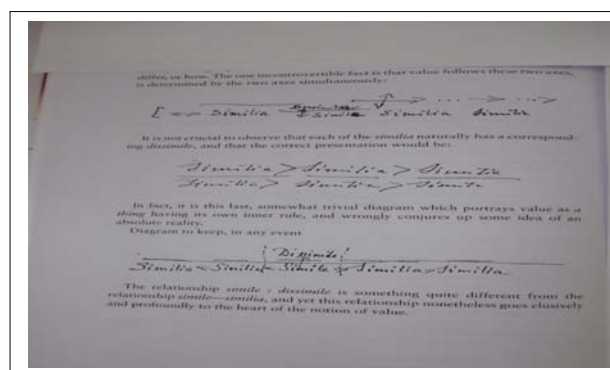 differ, or how. The one incontrovertible fact is that value follows these two axes,
is determined by the two axes simultaneously:
[ Similia Dissimile Simile Similia ... Similia
It is not crucial to observe that each of the similia naturally has a correspond-
ing dissimile, and that the correct presentation would be:
Similia > Similia > Simile
Similia > Similia > Simile
In fact, it is this last, somewhat trivial diagram which portrays value as a
thing having its own inner rule, and wrongly conjures up some idea of an
absolute reality.
Diagram to keep, in any event
Dissimile
Similia Similia Simile Similia Similia
The relationship simile : dissimile is something quite different from the
relationship simile—similia, and yet this relationship nonetheless goes elusively
and profoundly to the heart of the notion of value.